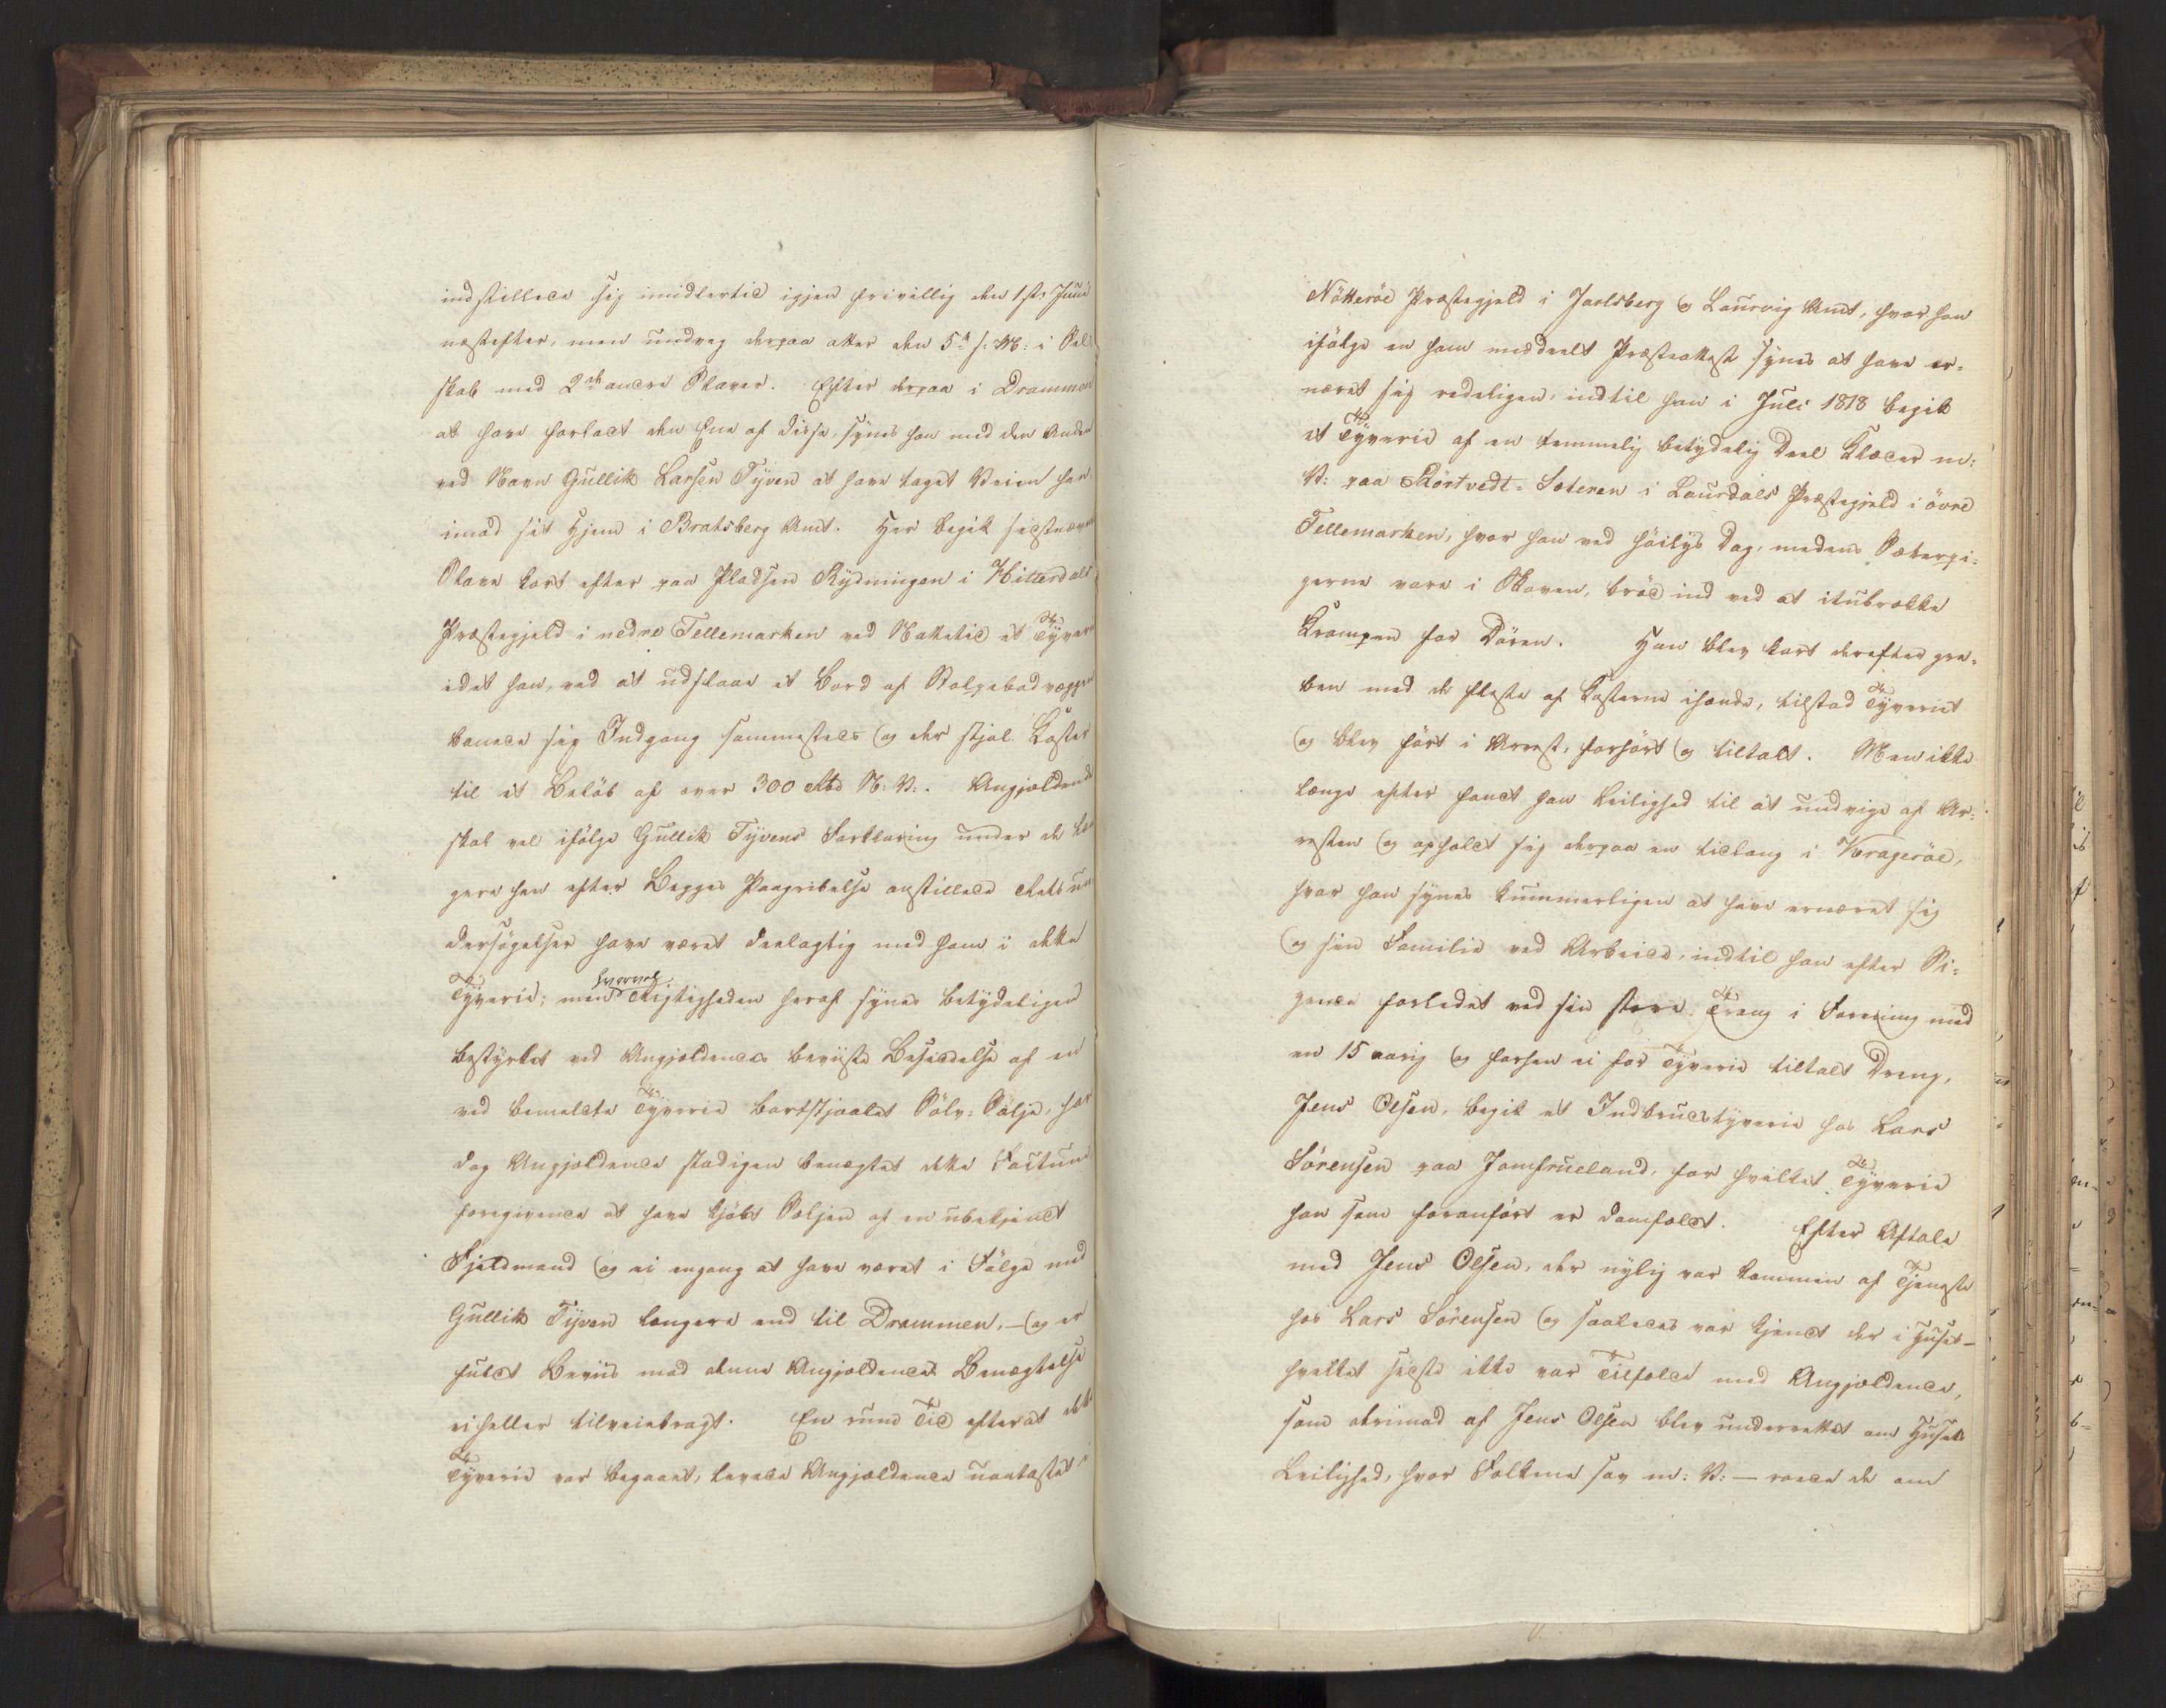 indstillede sig imidlertid igjen frivillig den 1ste Juni
næstefter, men undveg derpaa atter den 5te s: M: i Sel
skab med 2de andre Slaver. Efter derpaa i Drammen
at have forladt den Ene af disse, synes han med den Anden
ved Navn Gullik Larsen Tyven at have taget Veien hen
imod sit Hjem i Bratsberg Amt. Her begik sidstnævnte
Slave kort efter paa Pladsen Rydningen i Hitterdals
Præstegjeld i nedre Tellemarken ved Nattetid et Tyverie
idet han, ved at udslaae et Bord af Stolpebodvæggen
banede sig Indgang sammesteds og der stjal Koster
til et Beløb af over 300 Rbd N: V:. Angjældende
skal vel ifølge Gullik Tyvens Forklaring under de læn
gere hen efter Begges Paagribelse anstillede Retsun
dersøgelser have været deelagtig med ham i dette
Tyverie; men hvorvel Rigtigheden heraf synes betydeligen
bestyrket ved Angjældendes beviiste Besiddelse af en
ved bemeldte Tyverie bortstjaalet Sølv-Sølje, har
dog Angjældende stadigen benægtet dette Factum
foregivende at have kjøbt Søljen af en ubekjendt
Fjeldmand og ei engang at have været i Følge med
Gullik Tyven længere end til Drammen, – og er
fuldt Beviis mod denne Angjældendes Benægtelse
ei heller tilveiebragt. En rum Tid efterat dette
Tyverie var begaaet, levede Angjældende uantastet i
Nötteröe Præstegjeld i Jarlsberg og Laurvig Amt, hvor han
ifølge en ham meddeelt Præsteattest synes at have er-
næret sig redeligen, indtil han i Juli 1818 begik
et Tyverie af en temmelig betydelig Deel Klæder m:
V: paa Skörtvedt-Sæteren i Laurdals Præstegjeld i övre
Tellemarken, hvor han ved høilys Dag, medens Sæterpi-
gerne vare i Skoven, brød ind ved at itubrække
Krampen for Dören. Han blev kort derefter gre-
ben med de fleste af Kosterne ihænde, tilstod Tyveriet
og blev ført i Arrest, forhørt og tiltalt. Men ikke
længe efter fandt han Leilighed til at undvige af Ar-
resten og opholdt sig derpaa en tidlang i Krageröe,
hvor han synes kummerligen at have ernæret sig
og sin Familie ved Arbeide, indtil han efter Si-
gende forledet ved sin store Trang i Forening med
en 15 aarig og forhen ei for Tyverie tiltalt Dreng,
Jens Olsen, begik et Indbrudstyverie hos Lars
Sörensen paa Jomfrueland, for hvilket Tyverie
han som foranført er domfældt. Efter Aftale
med Jens Olsen, der nylig var kommen af Tjeneste
hos Lars Sörensen og saaledes var kjendt der i Huset –
hvilket sidste ikke var Tilfældet med Angjældende,
som derimod af Jens Olsen blev underrettet om Husets
Leilighed, hvor Folkene sov m: V: – roede de om